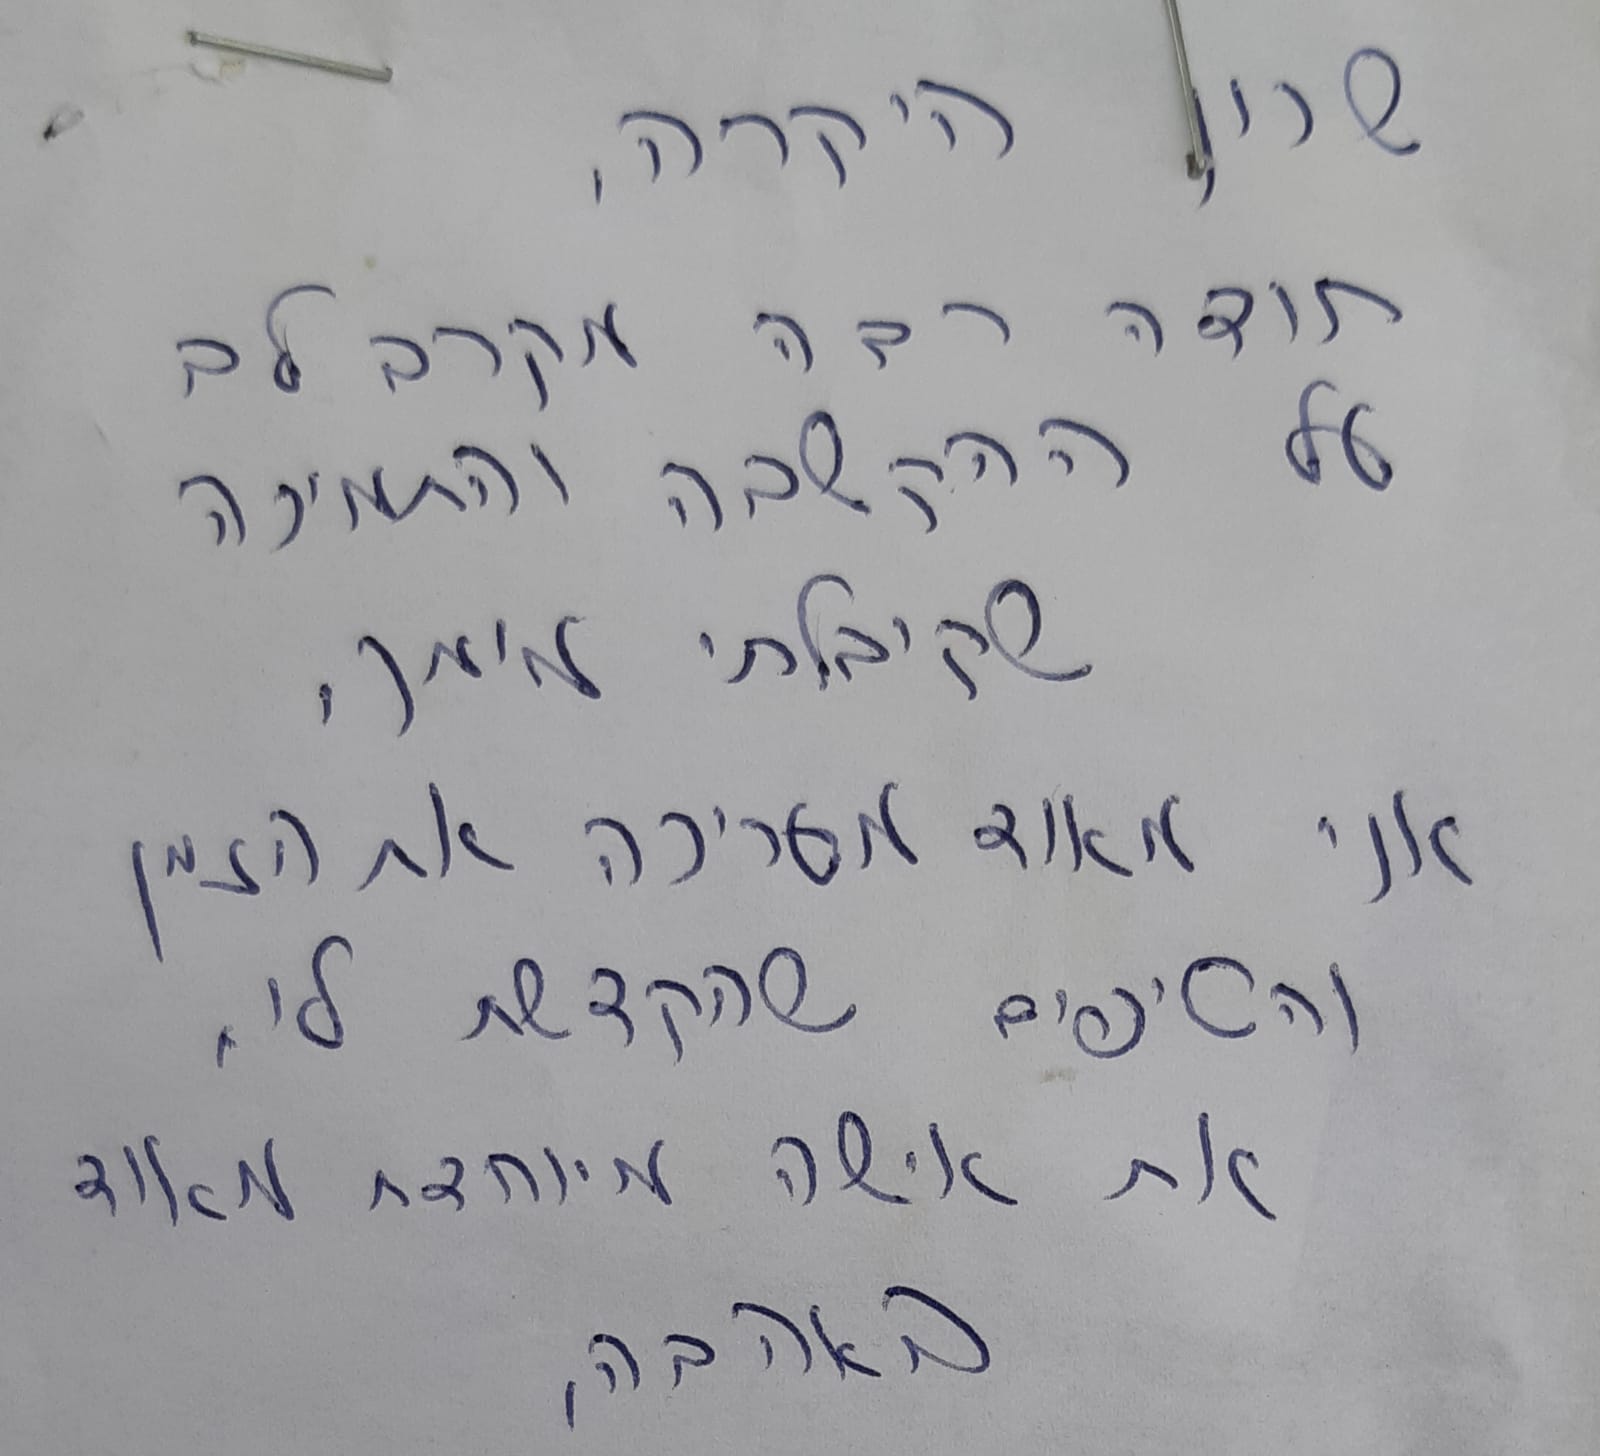 שרון היקרה,
תודה רבה מקרב לב
על ההקשבה והתמיכה
שקיבלתי מימך,
אני מאוד מעריכה את הזמן
והטיפים שהקדשת לי.
את אישה מיוחדת מאוד
באהבה,